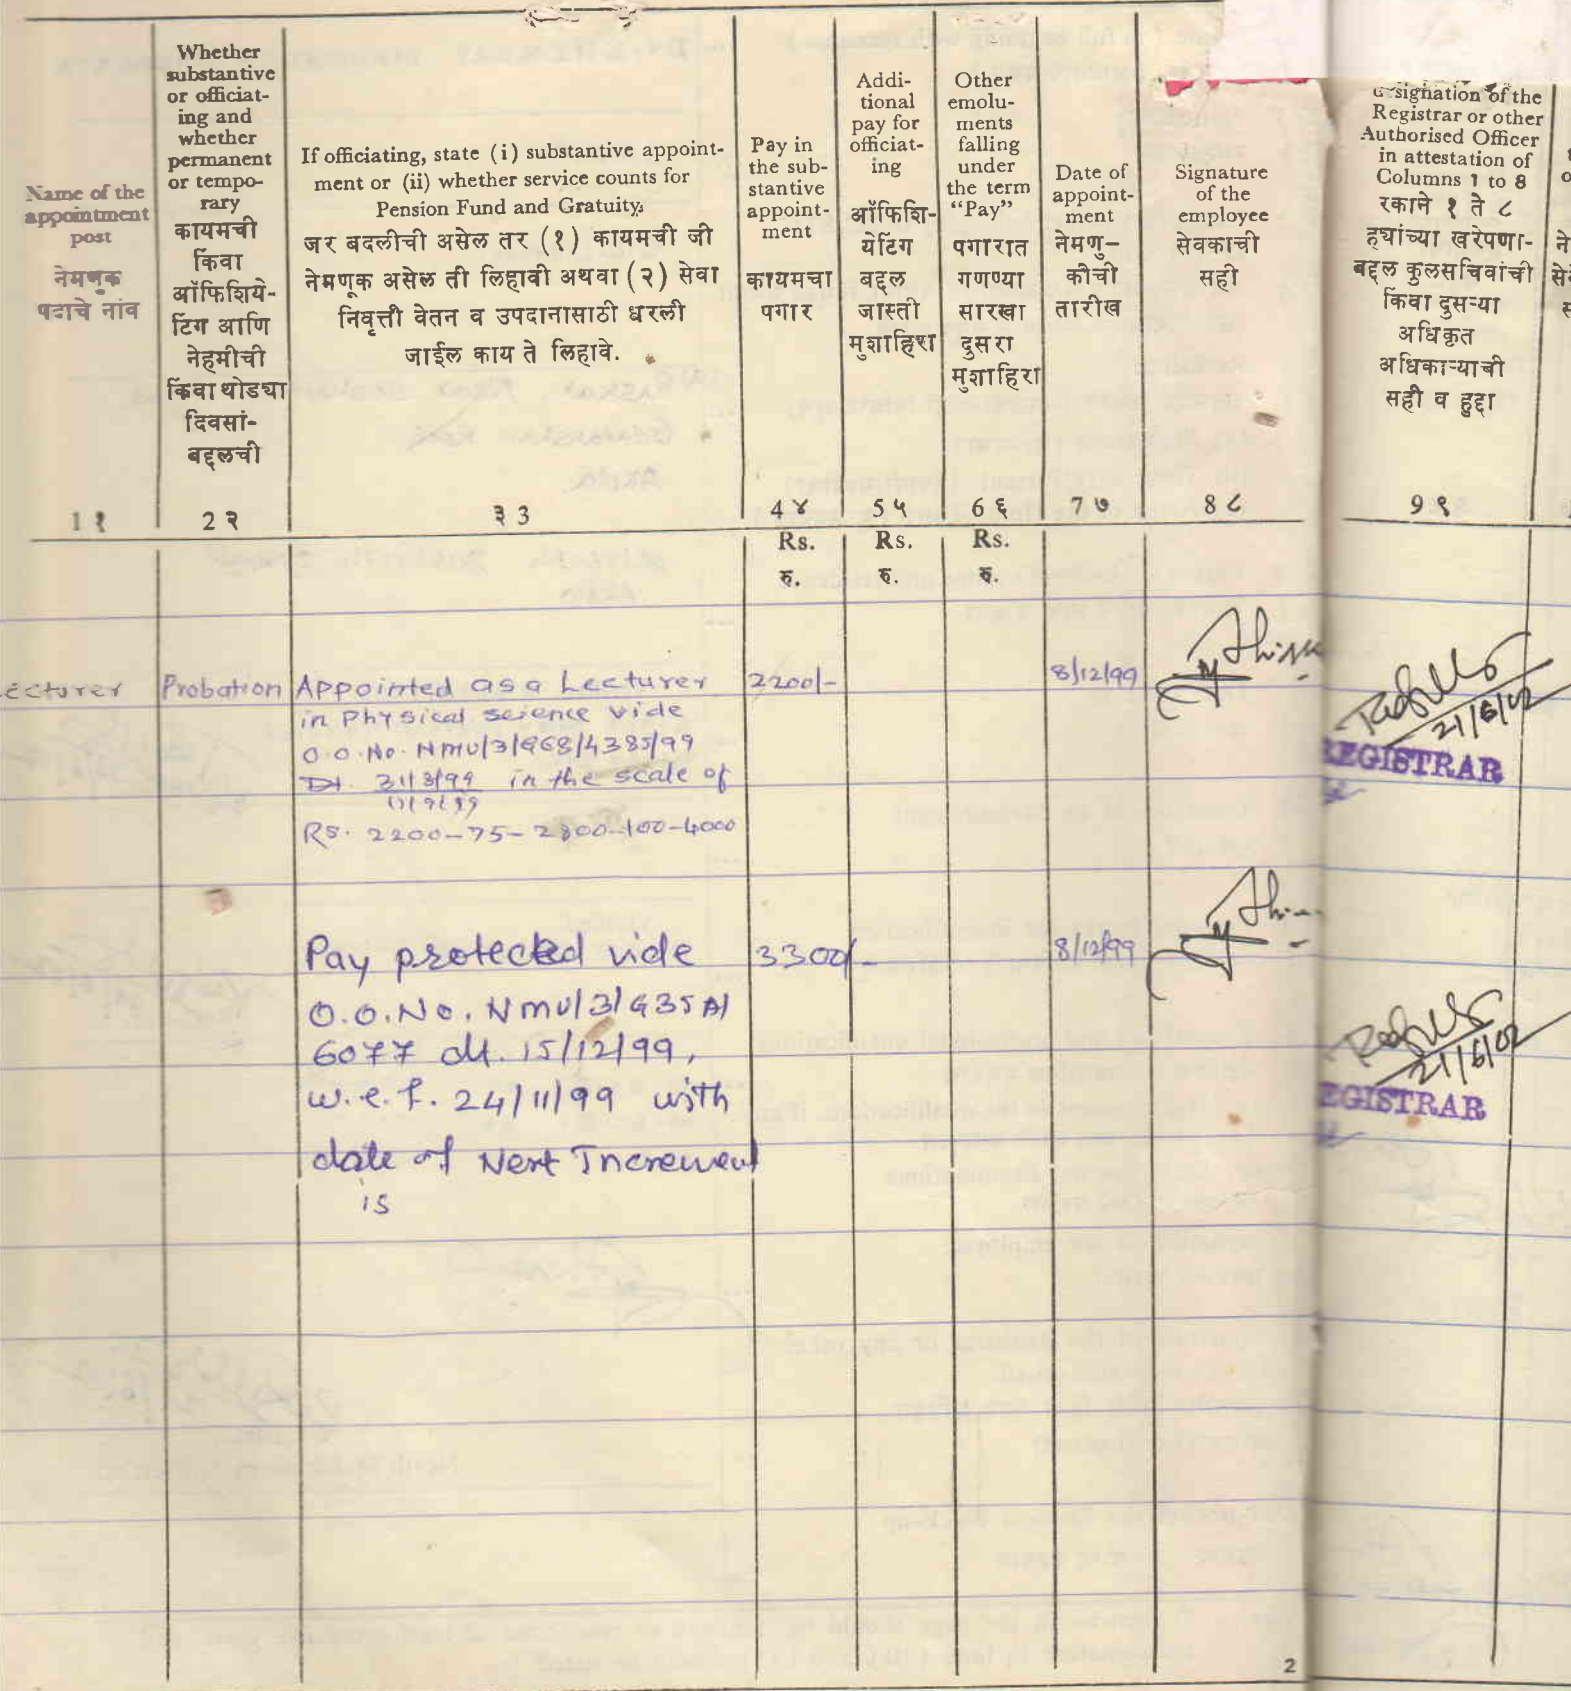 Name of the
appointment
post
नेमणूक
पदाचे नांव
Whether
substantive
or officiat-
ing and
whether
permanent
or tempo-
rary
कायमची
किंवा
ऑफिशिये-
टिंग आणि
नेहमीची
किंवा थोड्या
दिवसां-
बद्दलची
If officiating, state (i) substantive appoint-
ment or (ii) whether service counts for
Pension Fund and Gratuity.
जर बदलीची असेल तर (१) कायमची जी
नेमणूक असेल ती लिहावी अथवा (२) सेवा
निवृत्ती वेतन व उपदानासाठी धरली
जाईल काय ते लिहावे.
Pay in
the sub-
stantive
appoint-
ment
कायमचा
पगार
Addi-
tional
pay for
officiat-
ing
ऑफिशि-
येटिंग
बद्दल
जास्ती
मुशाहिरा
Other
emolu-
ments
falling
under
the term
“Pay”
पगारात
गणण्या
सारखा
दुसरा
मुशाहिरा
Date of
appoint-
ment
नेमणु-
कीची
तारीख
Signature
of the
employee
सेवकाची
सही
designation of the
Registrar or other
Authorised Officer
in attestation of
Columns 1 to 8
रकाने १ ते ८
ह्यांच्या खरेपणा-
बद्दल कुलसचिवांची
किंवा दुसऱ्या
अधिकृत
अधिकाऱ्याची
सही व हुद्दा
1 १ 2 २ ३ 3 4 ४ 5 ५ 6 ६ 7 ७ 8 ८ 9 ९
Rs. Rs. Rs.
रु. रु. रु.
ecturer Probation Appointed as a Lecturer 2200/- 8/12/99
in Physical science vide
O.O.No. NMU/3/G68/4385/99
Dt. 31/3/99 in the scale of
Rs. 2200-75-2800-100-4000
21/6/02
REGISTRAR
Pay protected vide 3300/- 8/12/99
O.O.No. NMU/3/G35A/
6077 dt. 15/12/99,
w.e.f. 24/11/99 with
date of Next Increment
is
21/6/02
EGISTRAR
2